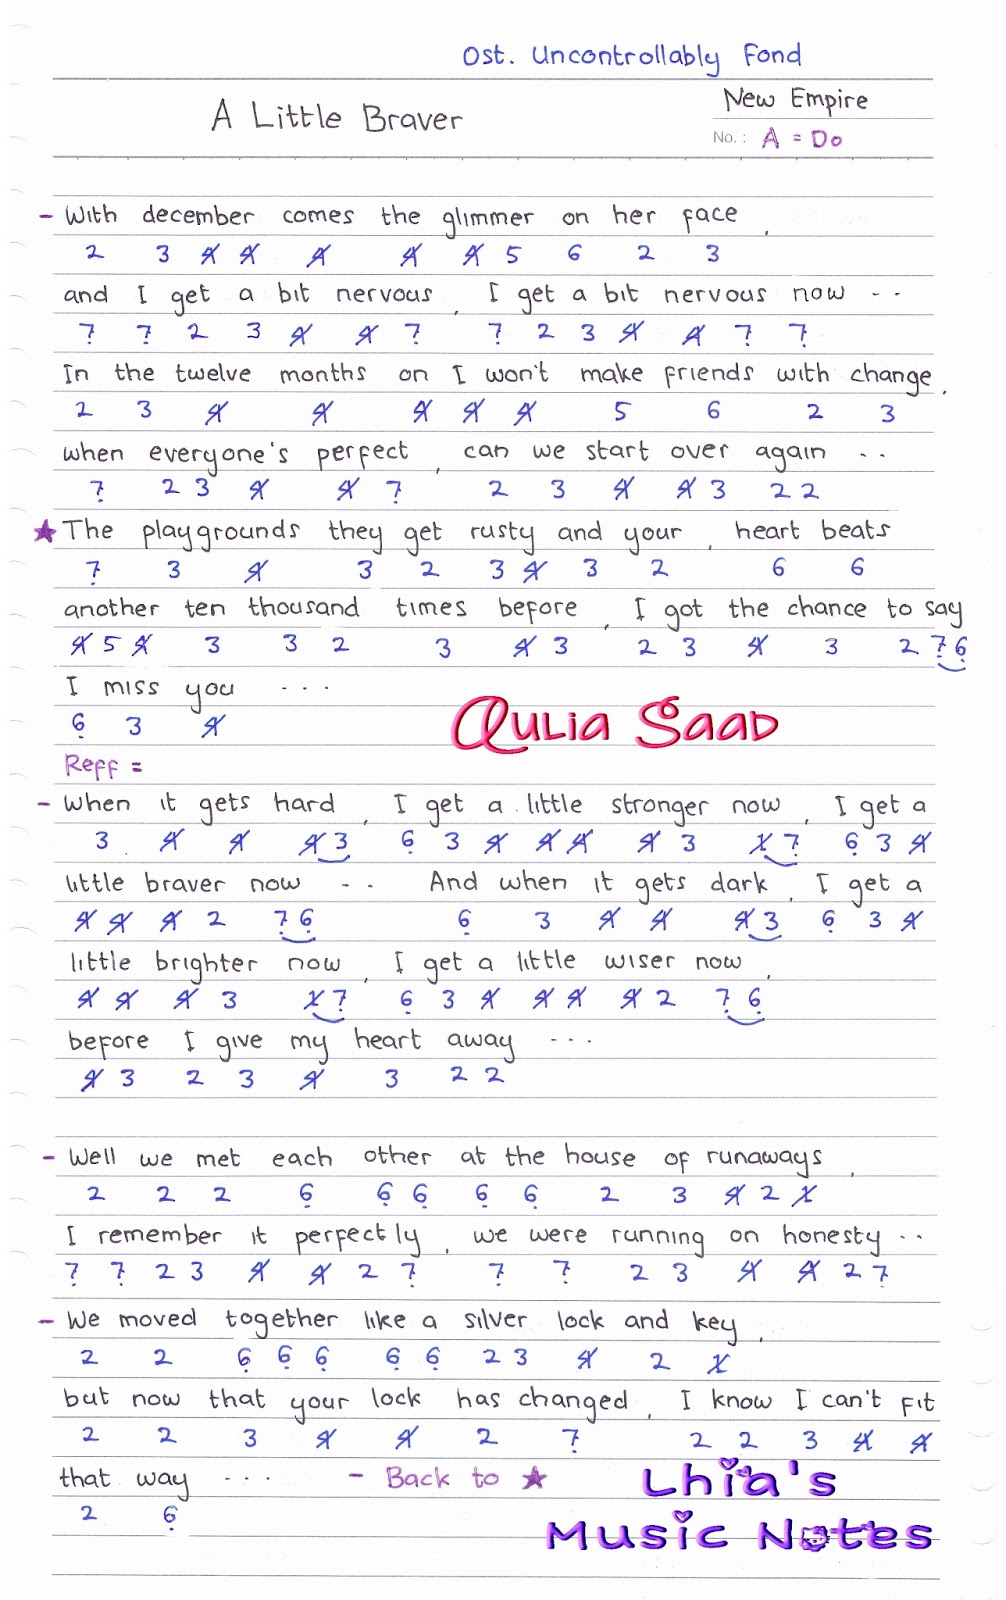 Ost. Uncontrollably Fond
A Little Braver
New Empire
No. : A = Do
- With december comes the glimmer on her face ,
2 3 4̸ 4̸ 4̸ 4̸ 4̸ 5 6 2 3
and I get a bit nervous , I get a bit nervous now ..
7̣ 7̣ 2 3 4̸ 4̸ 7̣ 7̣ 2 3 4̸ 4̸ 7̣ 7̣
In the twelve months on I won't make friends with change ,
2 3 4̸ 4̸ 4̸ 4̸ 4̸ 5 6 2 3
when everyone's perfect , can we start over again ..
7̣ 2 3 4̸ 4̸ 7̣ 2 3 4̸ 4̸ 3 2 2
★ The playgrounds they get rusty and your , heart beats
7̣ 3 4̸ 3 2 3 4̸ 3 2 6 6
another ten thousand times before , I got the chance to say
4̸ 5 4̸ 3 3 2 3 4̸ 3 2 3 4̸ 3 2 7̣ 6̣
I miss you ...
6̣ 3 4̸
Qulia Saad
Reff =
- When it gets hard , I get a little stronger now , I get a
3 4̸ 4̸ 4̸ 3 6̣ 3 4̸ 4̸ 4̸ 4̸ 3 1̸ 7̣ 6̣ 3 4̸
little braver now .. And when it gets dark , I get a
4̸ 4̸ 4̸ 2 7̣ 6̣ 6̣ 3 4̸ 4̸ 4̸ 3 6̣ 3 4̸
little brighter now , I get a little wiser now ,
4̸ 4̸ 4̸ 3 1̸ 7̣ 6̣ 3 4̸ 4̸ 4̸ 4̸ 2 7̣ 6̣
before I give my heart away ...
4̸ 3 2 3 4̸ 3 2 2
- Well we met each other at the house of runaways ,
2 2 2 6̣ 6̣ 6̣ 6̣ 6̣ 2 3 4̸ 2 1̸
I remember it perfectly , we were running on honesty ..
7̣ 7̣ 2 3 4̸ 4̸ 2 7̣ 7̣ 7̣ 2 3 4̸ 4̸ 2 7̣
- We moved together like a silver lock and key ,
2 2 6̣ 6̣ 6̣ 6̣ 6̣ 2 3 4̸ 2 1̸
but now that your lock has changed , I know I can't fit
2 2 3 4̸ 4̸ 2 7̣ 2 2 3 4̸ 4̸
that way .... - Back to ★
2 6̣
Lhia's
Music Notes